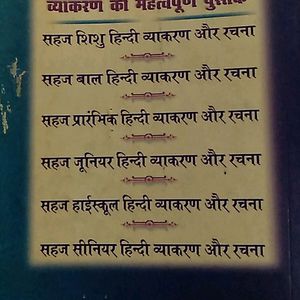 व्याकरण की महत्वपूर्ण पुस्तकें
सहज शिशु हिन्दी व्याकरण और रचना
सहज बाल हिन्दी व्याकरण और रचना
सहज प्रारंभिक हिन्दी व्याकरण और रचना
सहज जूनियर हिन्दी व्याकरण और रचना
सहज हाईस्कूल हिन्दी व्याकरण और रचना
सहज सीनियर हिन्दी व्याकरण और रचना